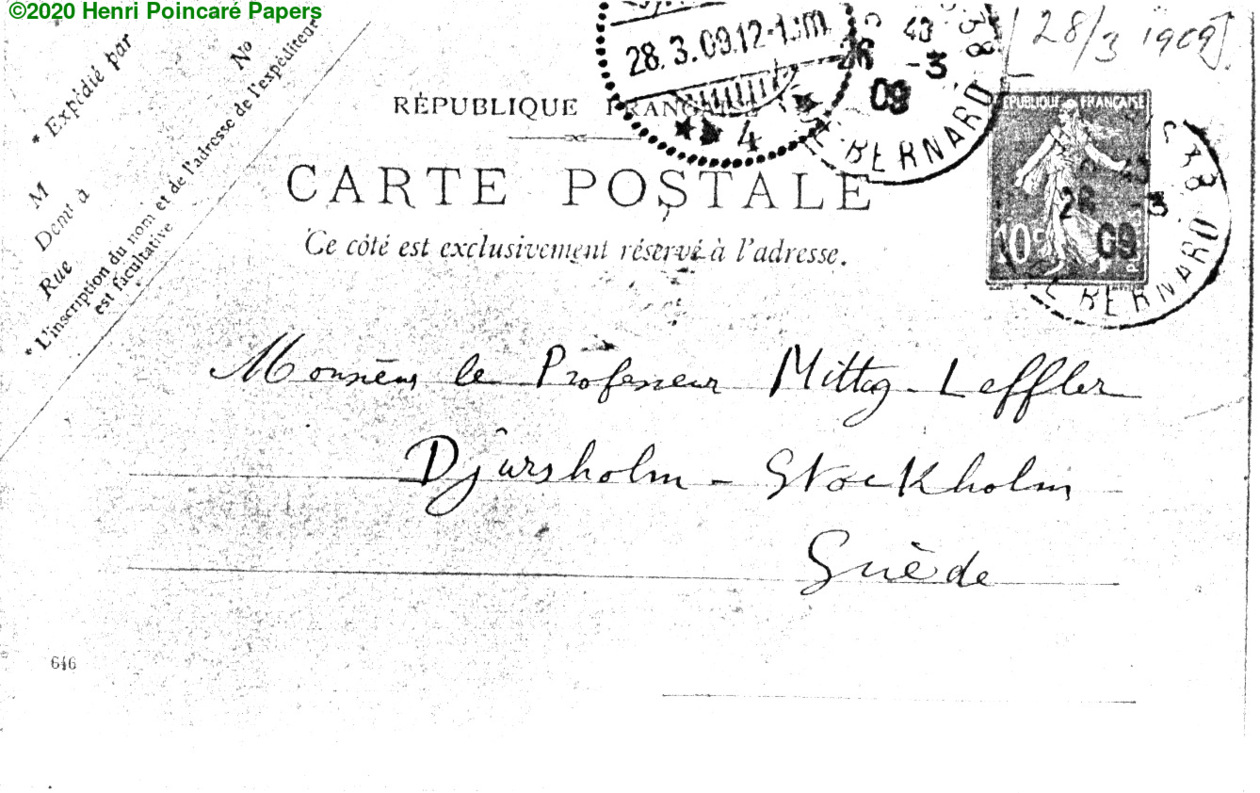 ©2020 Henri Poincaré Papers
* Expédié par
No
M
Demt à
Rue
* L'inscription du nom et de l'adresse de l'expéditeur
est facultative
28.3.09.12-1.m
4
40
26 -3
09
BERNARD
[28/3 1909].
RÉPUBLIQUE FRANÇAISE
CARTE POSTALE
Ce côté est exclusivement réservé à l'adresse.
RÉPUBLIQUE FRANÇAISE
10c
26 -3
09
BERNARD
Monsieur le Professeur Mittag-Leffler
Djursholm - Stockholm
Suède
646